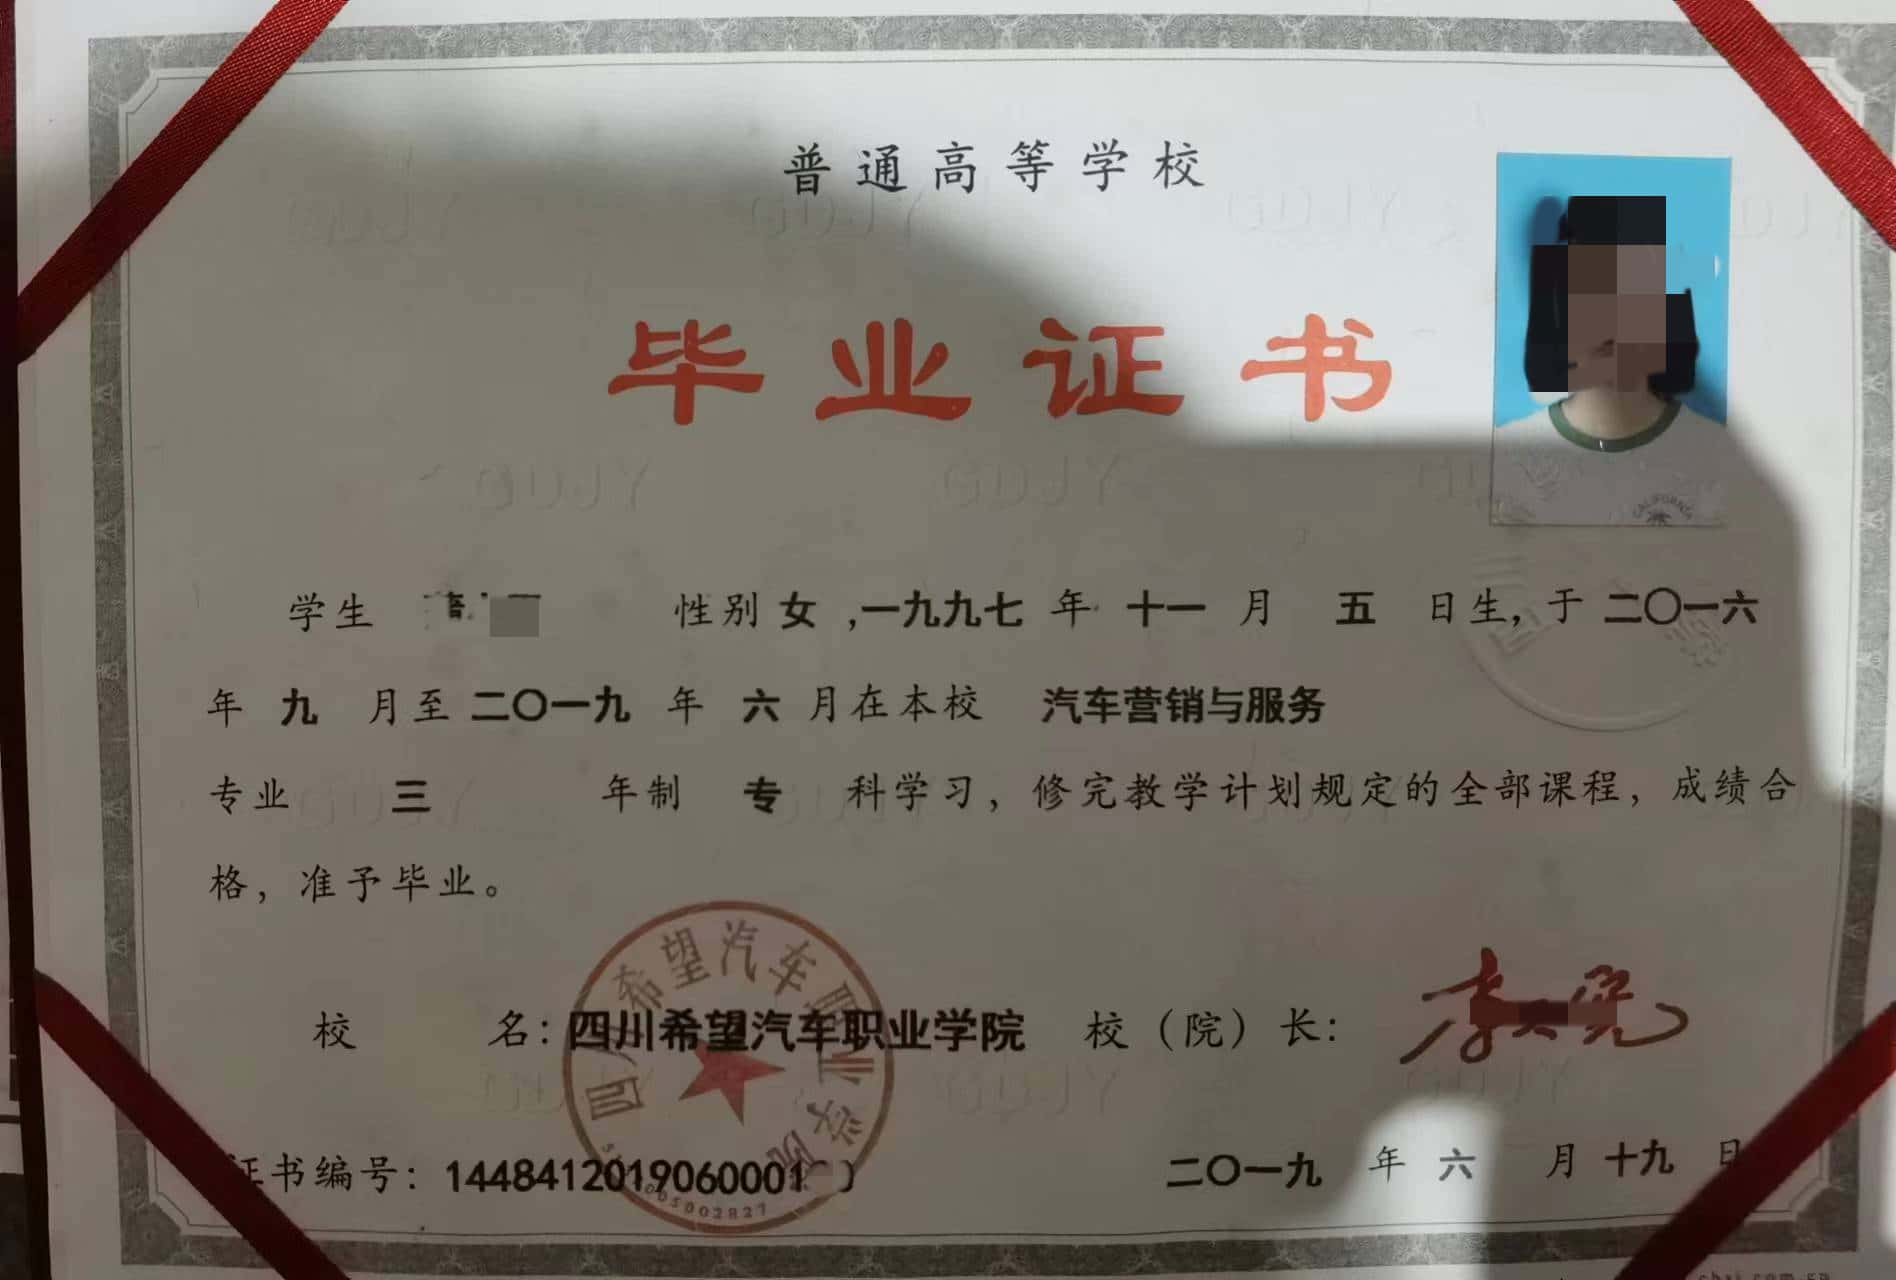 普通高等学校
毕业证书
CALIFORNIA
学生 性别 女 ,一九九七 年 十一 月 五 日生，于 二〇一六
年 九 月至 二〇一九 年 六 月在本校 汽车营销与服务
专业 三 年制 专 科学习，修完教学计划规定的全部课程，成绩合
格，准予毕业。
校 名：四川希望汽车职业学院 校（院）长：
四川希望汽车职业学院
证书编号：1448412019060001
二〇一九 年 六 月 十九 日